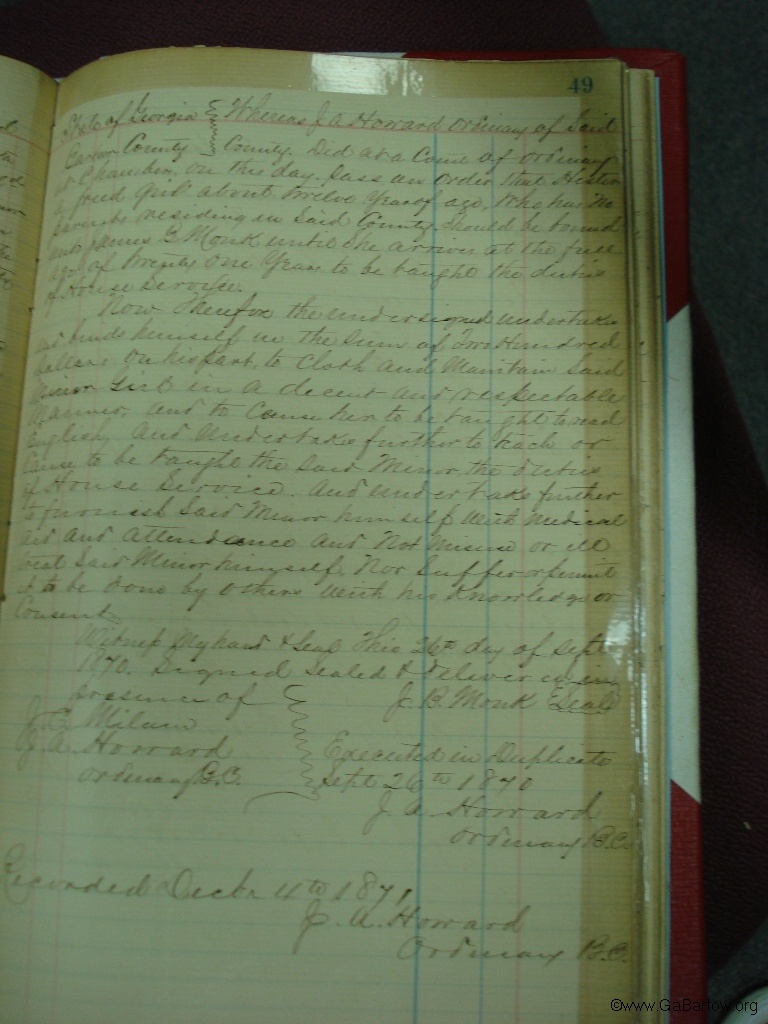 49
State of Georgia Whereas J A Howard Ordinary of Said
County County. Did at a Court of Ordinary
at Chambers, on this day. Pass an Order that Hester
a freed girl about twelve Years of age, Who has no
parents residing in Said County, should be bound
unto James B Monk until she arrives at the full
age of twenty one Years to be taught the duties
of House Service.
Now Therefore the undersigned undertakes
and binds himself in the Sum of Two Hundred
Dollars, On his part, to Cloth and Maintain Said
Minor Girl in a decent and respectable
Manner, and to Cause her to be taught to read
English, And Undertakes further to teach or
Cause to be taught the Said Minor the duties
of House Service. And undertakes further
to furnish Said Minor himself With Medical
aid And Attendance And Not Misuse or ill
treat Said Minor himself, Nor Suffer or permit
it to be done by others With his Knowledge or
Consent
Witness My hand & Seal This 26th day of Sept
1870. Signed Sealed & deliver in
presence of J. B. Monk Seal
Milam
J. A. Howard Executed in Duplicate
Ordinary B.C. Sept 26th 1870
J. A. Howard
Ordinary B.C.
Recorded Decbr 4th 1871
J. A. Howard
Ordinary B.C.
©www.GaBartow.org